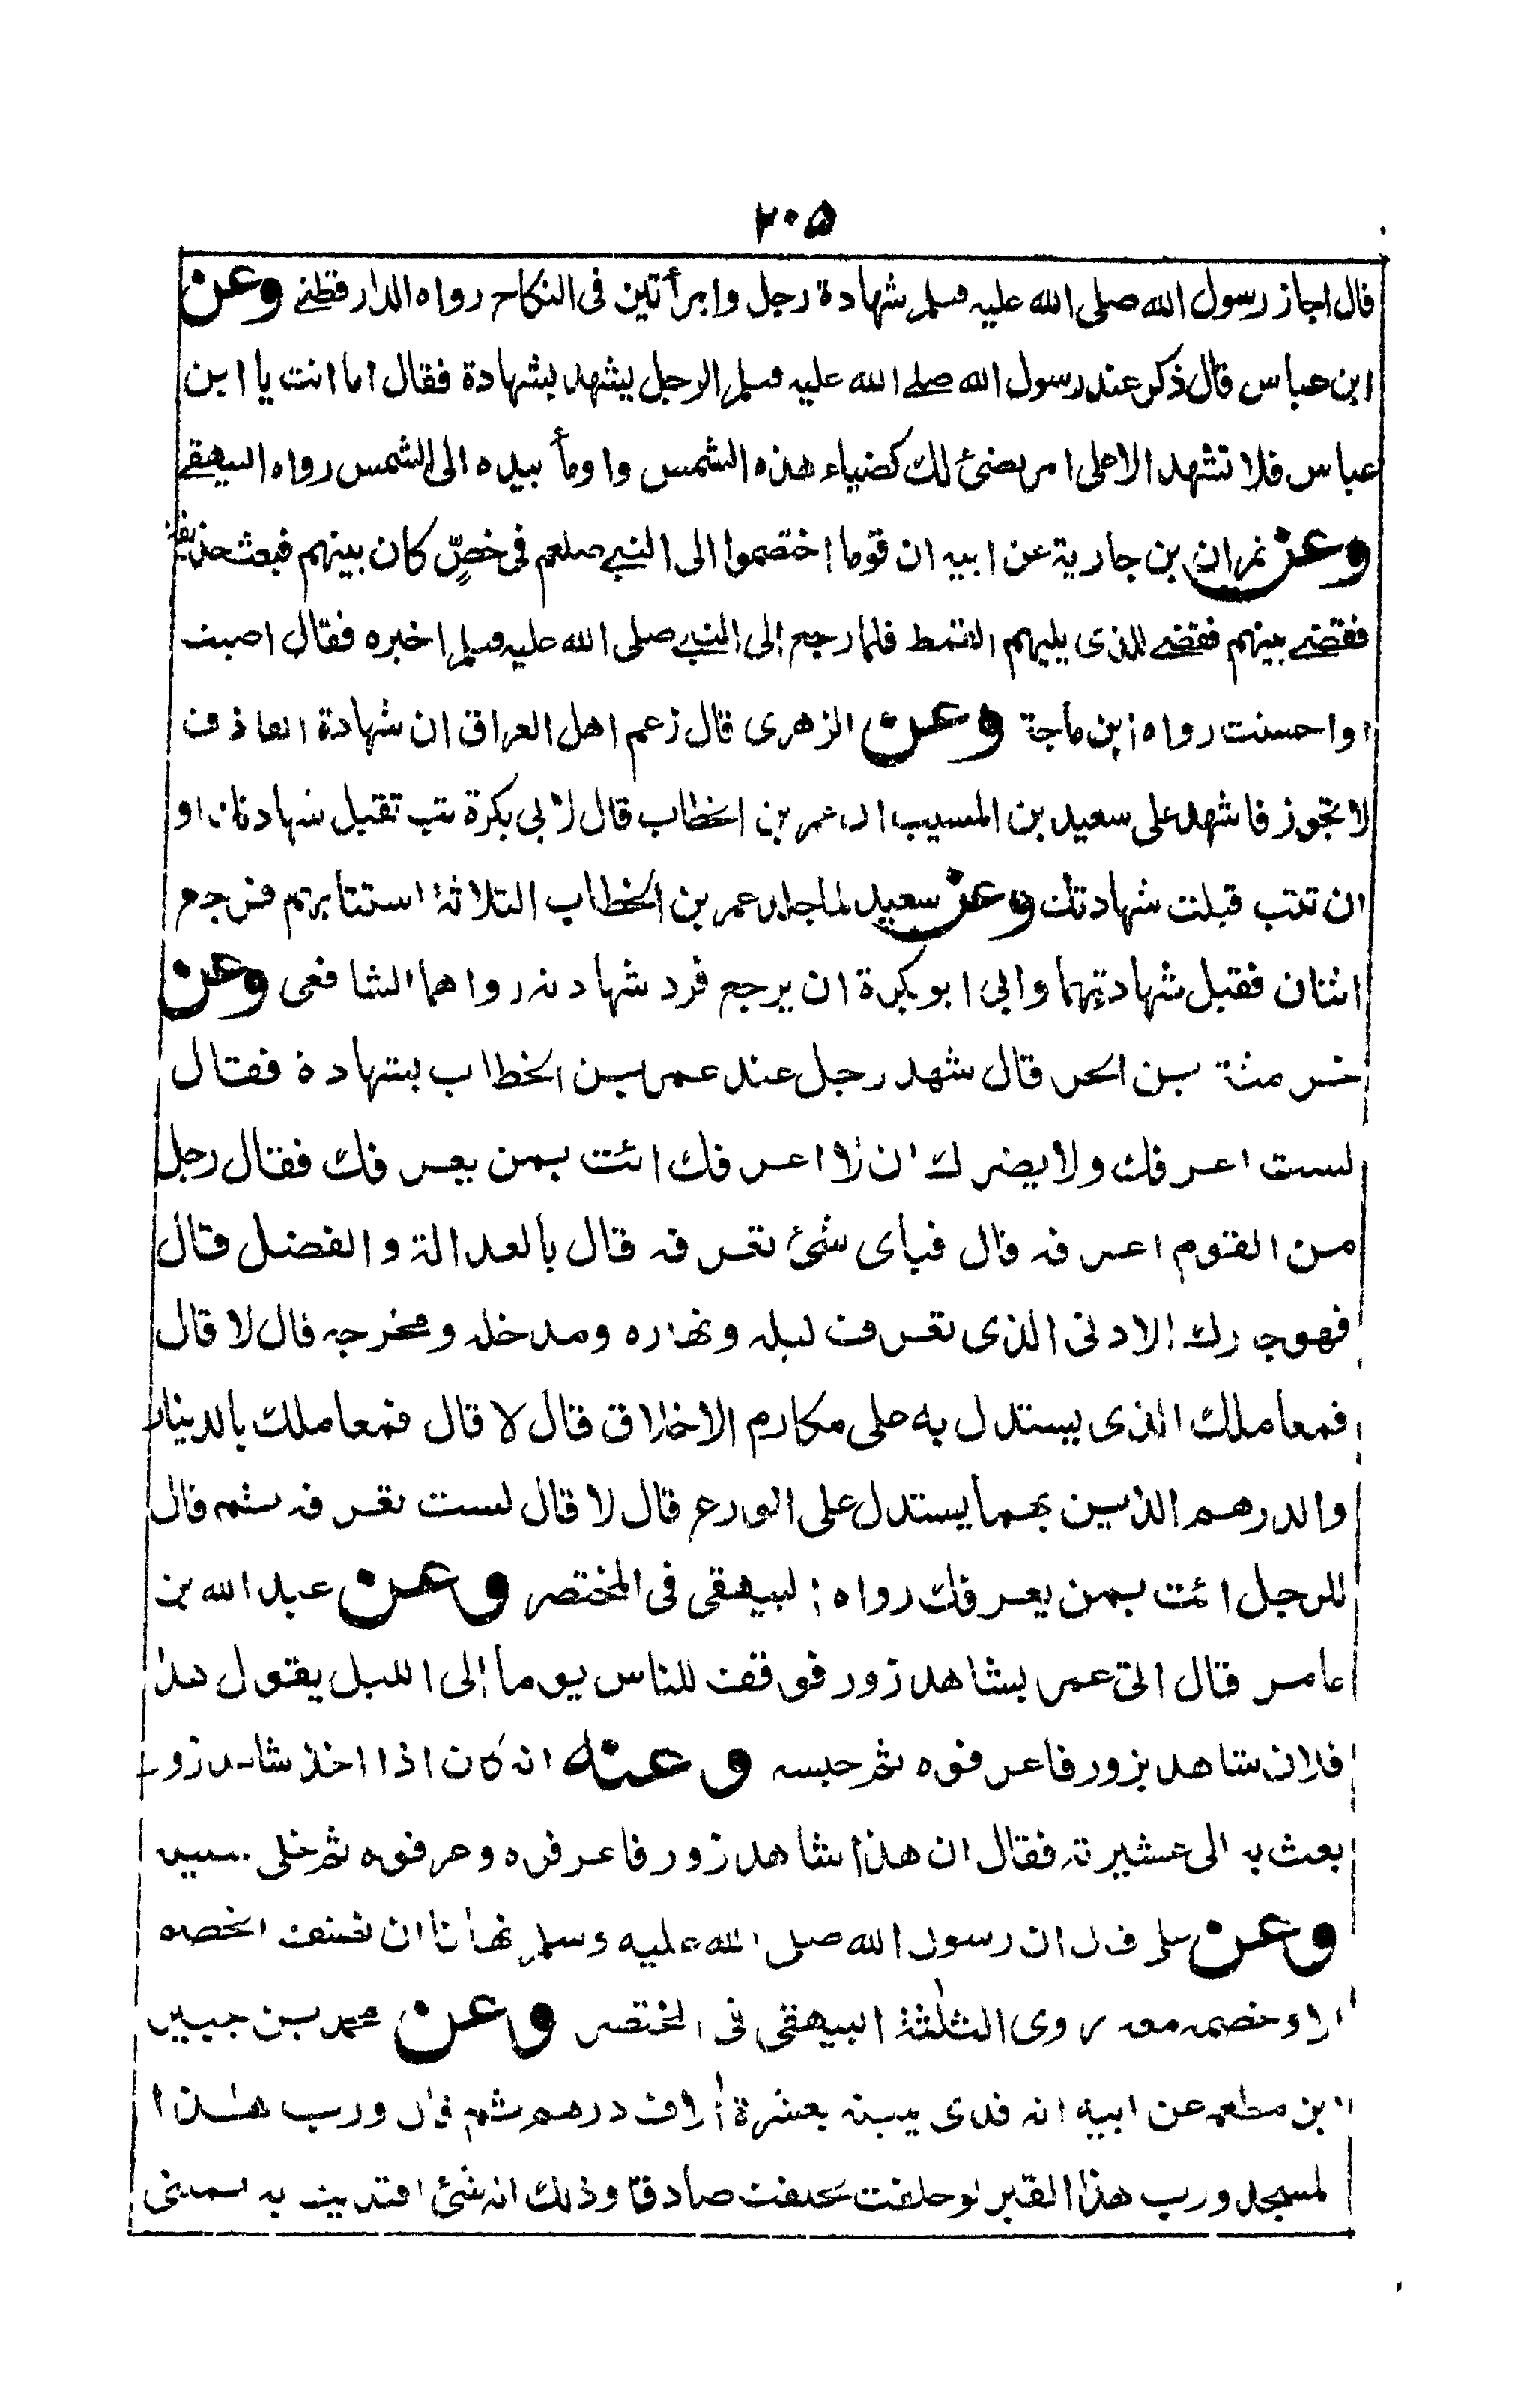 ٢٠٥
قال اجاز رسول الله صلى الله عليه وسلم شهادة رجل وامرأتين فى النكاح رواه الدارقطنے وعن
ابن عباس قال ذكر عند رسول الله صلے الله عليه وسلم الرجل يشهد بشهادة فقال اما انت يا ابن
عباس فلا تشهد الا على امر يضئ لك كضياء هذه الشمس واومأ بيده الى الشمس رواه البيهقے
وعن نمران بن جارية عن ابيه ان قوما اختصموا الى النبے صلعم فى خصٍّ كان بينهم فبعث حذيفة
فقضے بينهم فقضے للذى يليهم القمط فلما رجع الى النبے صلى الله عليه وسلم اخبره فقال اصبت
واحسنت رواه ابن ماجة وعن الزهرى قال زعم اهل العراق ان شهادة القاذف
لا تجوز فاشهد على سعيد بن المسيب ان عمر بن الخطاب قال لابى بكرة تب تقبل شهادتك او
ان تتب قبلت شهادتك وعن سعيد لما جلد عمر بن الخطاب الثلاثة استتابهم فرجع
اثنان فقبل شهادتهما وابى ابو بكرة ان يرجع فرد شهادته رواهما الشافعى وعن
خرشة بن الحر قال شهد رجل عند عمر بن الخطاب بشهادة فقال
لست اعرفك ولا يضرك ان لا اعرفك ائت بمن يعرفك فقال رجل
من القوم اعرفه قال فباى شئ تعرفه قال بالعدالة والفضل قال
فهو جارك الادنى الذى تعرف ليله ونهاره ومدخله ومخرجه قال لا قال
فمعاملك الذى يستدل به على مكارم الاخلاق قال لا قال فمعاملك بالدينار
والدرهم الذين بهما يستدل على الورع قال لا قال لست تعرفه ثم قال
للرجل ائت بمن يعرفك رواه البيهقى فى المختصر وعن عبد الله بن
عامر قال اتى عمر بشاهد زور فوقفه للناس يوما الى الليل يقول هذا
فلان شاهد بزور فاعرفوه ثم حبسه وعنه انه كان اذا اخذ شاهد زور
بعث به الى عشيرته فقال ان هذا شاهد زور فاعرفوه وعرفوه ثم خلى سبيله
وعن على قال ان رسول الله صلى الله عليه وسلم نهانا ان نضيف الخصم
الا وخصمه معه روى الثلثة البيهقى فى المختصر وعن محمد بن جبير
بن مطعم عن ابيه انه فدى يمينه بعشرة آلاف درهم ثم قال ورب هذا
المسجد ورب هذا القبر لو حلفت لحلفت صادقا وذلك انه شئ افتديت به يمينى